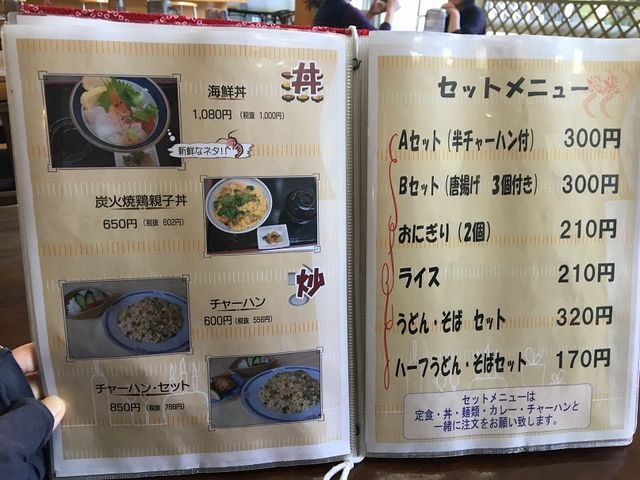 丼
海鮮丼
1,080円 (税抜 1,000円)
新鮮なネタ!!
炭火焼鶏親子丼
650円 (税抜 602円)
炒
チャーハン
600円 (税抜 556円)
チャーハン・セット
850円 (税抜 788円)
セットメニュー
Aセット(半チャーハン付) 300円
Bセット(唐揚げ 3個付き) 300円
おにぎり(2個) 210円
ライス 210円
うどん・そば セット 320円
ハーフうどん・そばセット 170円
セットメニューは
定食・丼・麺類・カレー・チャーハンと
一緒に注文をお願い致します。